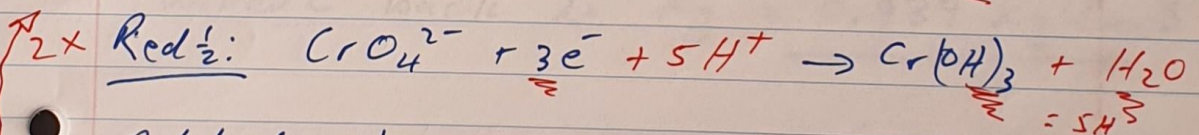 2x Red ½: CrO₄²⁻ + 3e⁻ + 5H⁺ → Cr(OH)₃ + H₂O
= 5H